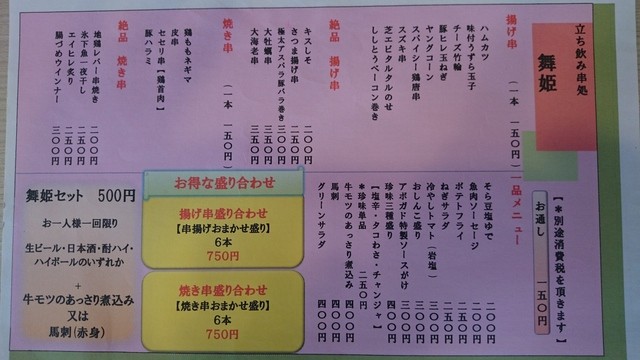 立ち飲み串処
舞姫
【*別途消費税を頂きます】
お通し 一五〇円
揚げ串 (一本 一五〇円)
ハムカツ
味付うずら玉子
チーズ竹輪
豚ヒレ玉ねぎ
ヤングコーン
スパイシー鶏唐串
スズキ串
芝エビタルタルのせ
ししとうベーコン巻き
絶品 揚げ串
キスしそ 二〇〇円
さつま揚げ串 二五〇円
極太アスパラ豚バラ巻き 三〇〇円
大牡蠣串 三五〇円
大海老串 三五〇円
焼き串 (一本 一五〇円)
鶏ももネギマ
皮串
セセリ串【鶏首肉】
豚ハラミ
絶品 焼き串
地鶏レバー串焼き 二〇〇円
氷下魚一夜干し 二五〇円
エイヒレ炙り 二五〇円
腸づめウインナー 三〇〇円
一品メニュー
そら豆塩ゆで 二〇〇円
魚肉ソーセージ 二〇〇円
ポテトフライ 二五〇円
ねぎサラダ 二五〇円
冷やしトマト(岩塩) 二五〇円
おしんこ盛り 三〇〇円
アボガド特製ソースがけ 三〇〇円
珍味三種盛り 四〇〇円
【塩辛・タコわさ・チャンジャ】
*珍味単品 二五〇円
牛モツのあっさり煮込み 四〇〇円
馬刺 四〇〇円
グリーンサラダ 四〇〇円
お得な盛り合わせ
揚げ串盛り合わせ
【串揚げおまかせ盛り】
6本
750円
焼き串盛り合わせ
【焼き串おまかせ盛り】
6本
750円
舞姫セット 500円
お一人様一回限り
生ビール・日本酒・酎ハイ・
ハイボールのいずれか
+
牛モツのあっさり煮込み
又は
馬刺(赤身)